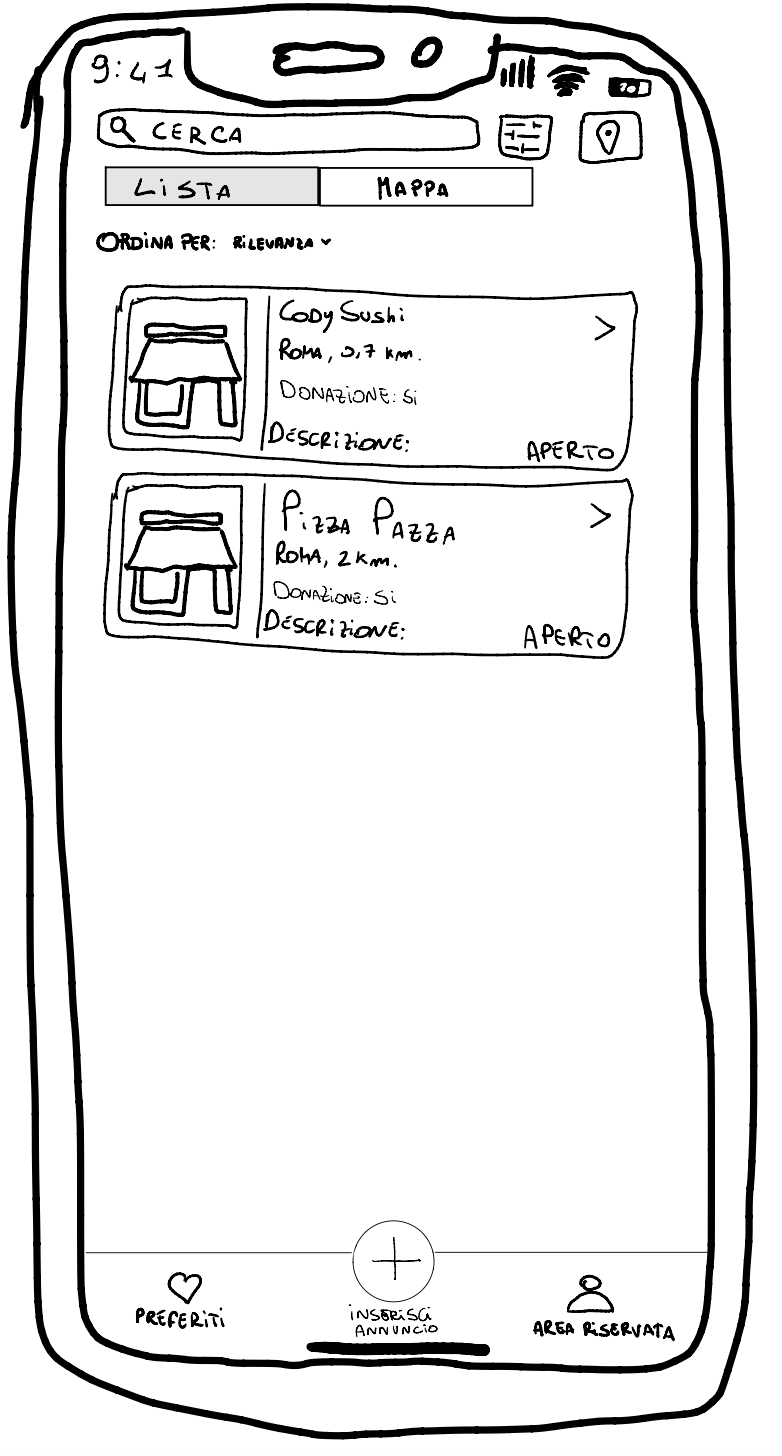 9:41
CERCA
LiSTA
MAPPA
ORDiNA PER: RiLEVANZA
Cody Sushi
ROMA, 0,7 km.
DONAZiONE: Si
DESCRiZiONE:
APERTO
PiZZA PAZZA
ROMA, 2 km.
DONAZiONE: Si
DESCRiZiONE:
APERTO
PREFERiTi
iNSERiSCi
ANNUNCiO
AREA RiSERVATA